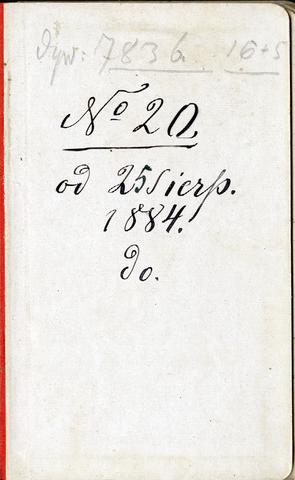 dyw: 7836 16+5
No 20
od 25 Sierp.
1884.
do.